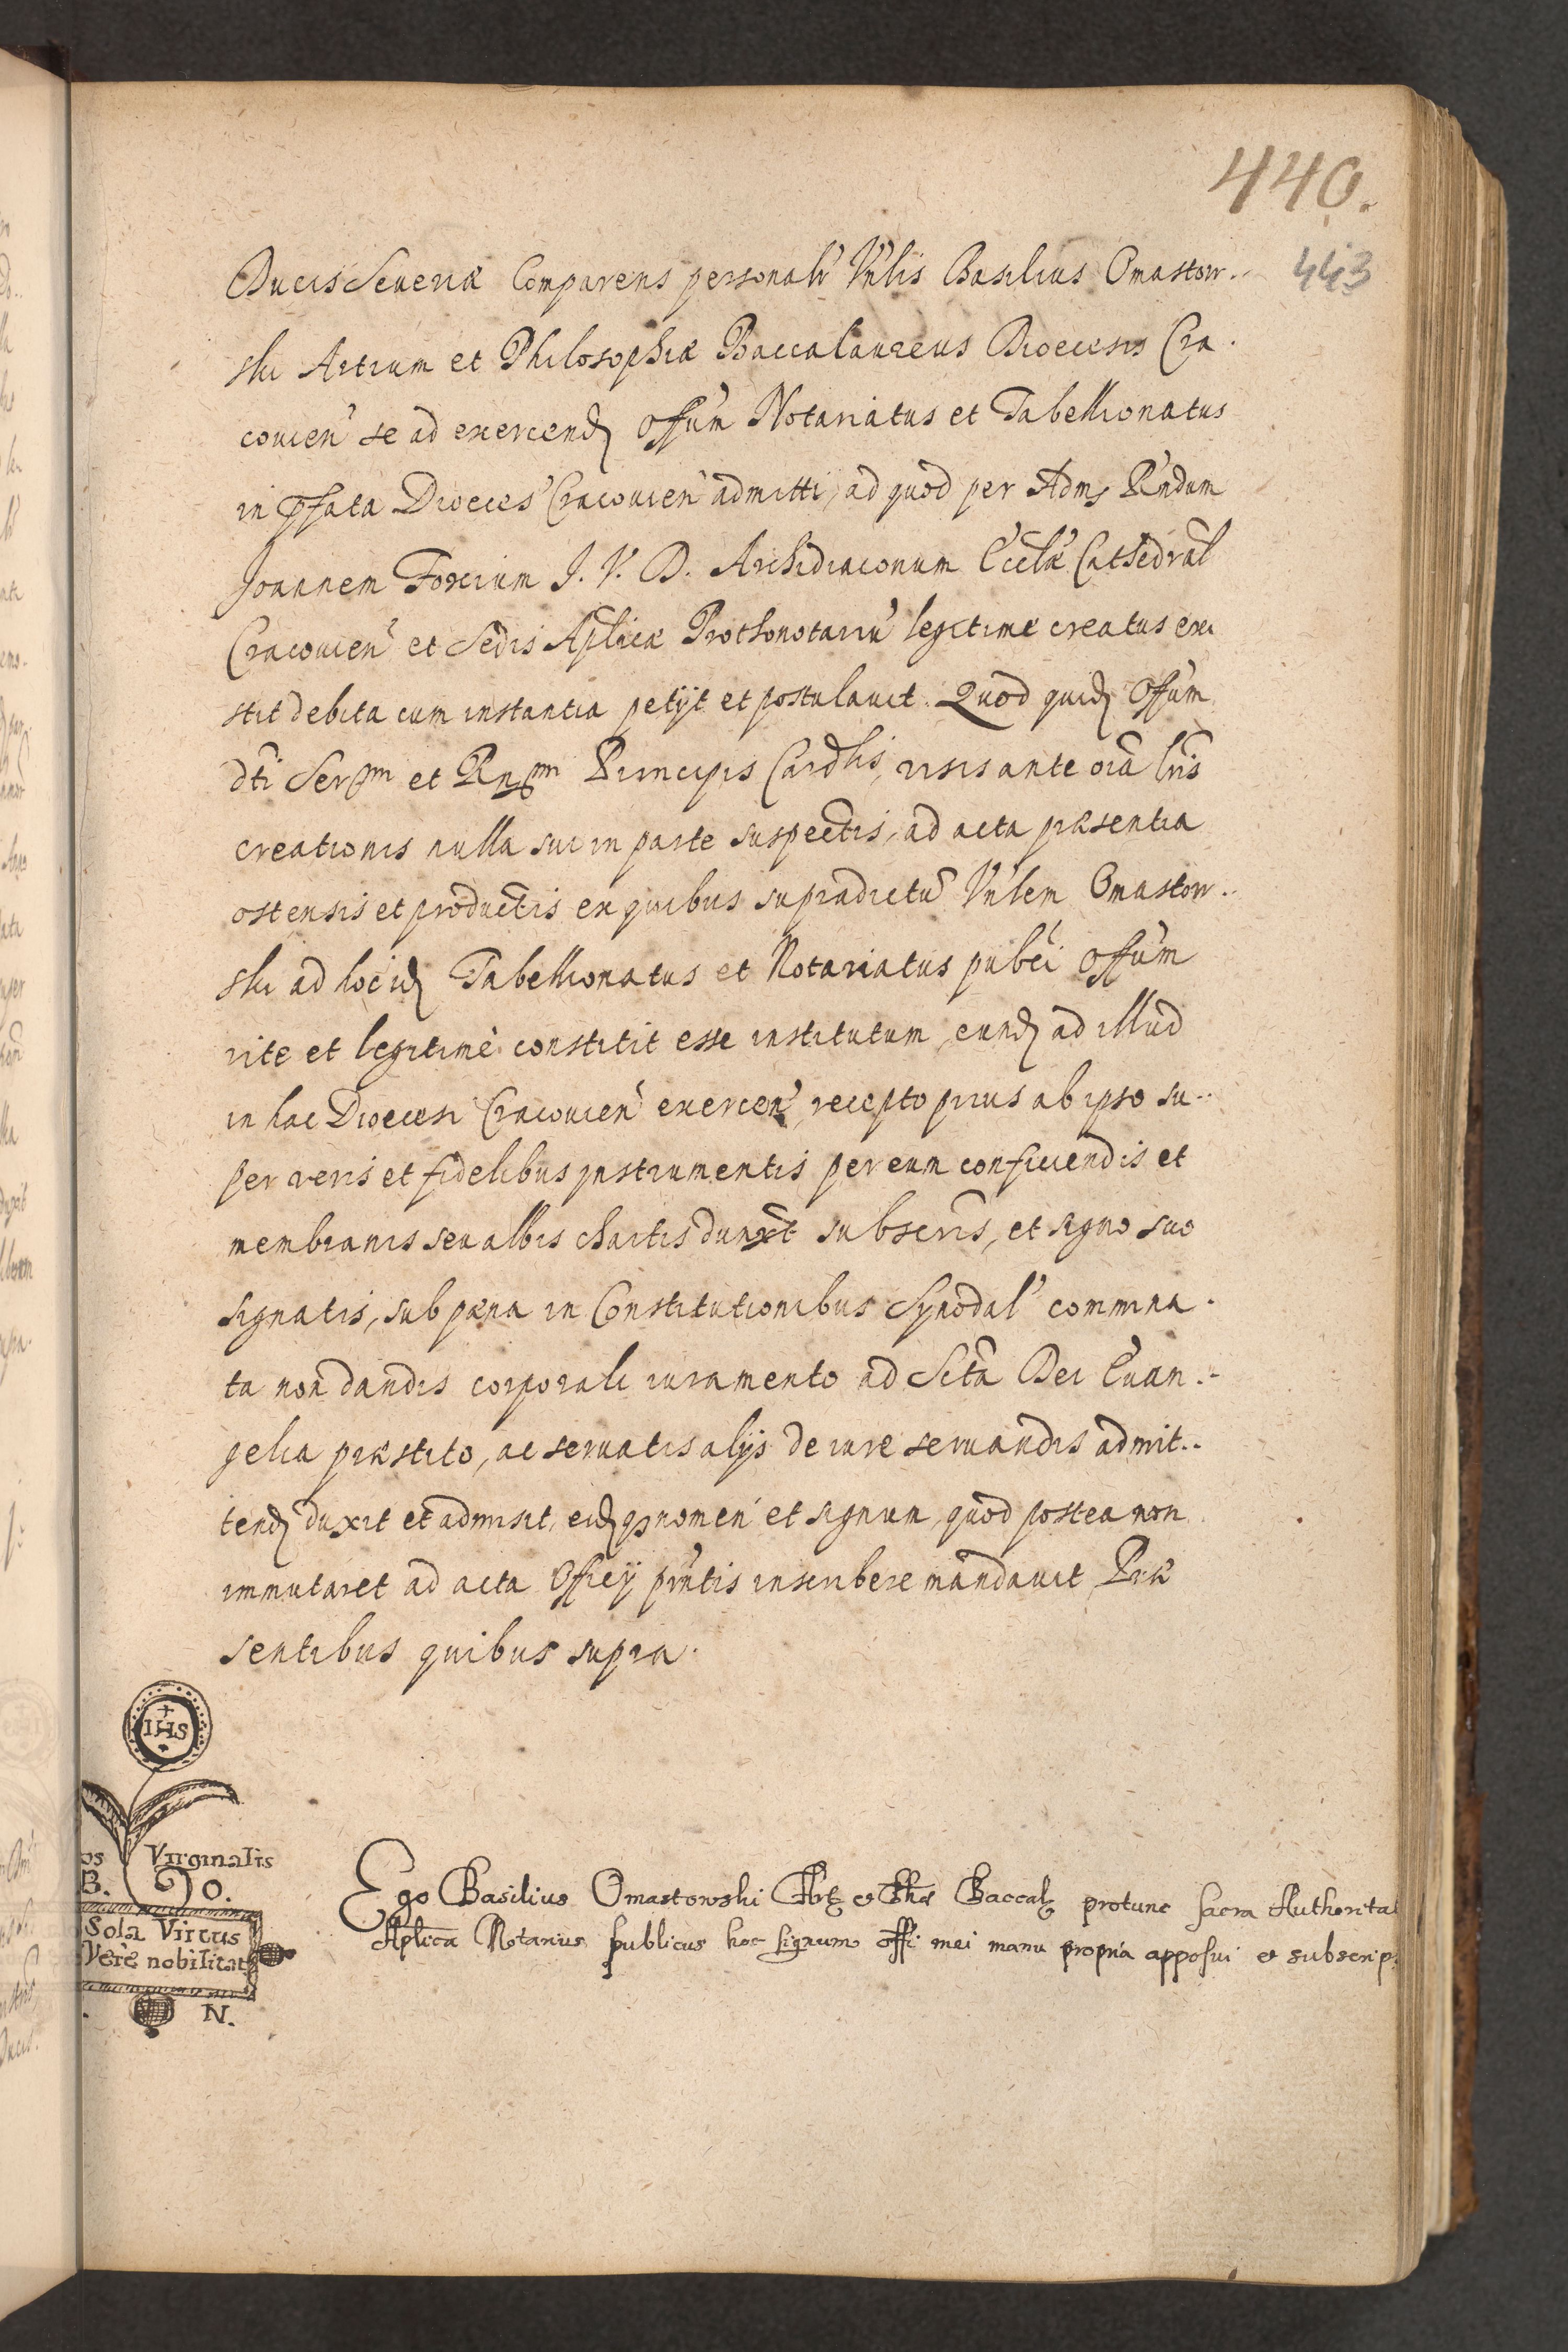 440.
443
Ducis Seueriæ Comparens personalr̃ Vn̄lis Basilius Omastow..
ski Artium et Philosophiæ Baccalaureus Dioecesis Cra.
couien̄ se ad exercend̨ Offūm Notariatus et Tabellionatus
in p̄fata Dioeces̄ Cracouien̄ admitti, ad quod per Adm̨ Rn̄dum
Joannem Foxium J. V. D. Archidiaconum Eccl̄æ Cathedral̄
Cracouien̄ et Sedis Ap̄licæ Prothonotariū legitime creatus exi
stit debita cum instantia petijt et postulauit. Quod quid̨ Offūm
dt̄i Ser̄mi et Rn̄dmi Principis Card̄lis, visis ante oīa lr̄is
creationis nulla sui in parte suspectis, ad acta præsentia
ostensis et productis ex quibus supradictū Vn̄lem Omastow..
ski ad hoc id̨ Tabellionatus et Notariatus publ̄ci Offūm
rite et legitimè constitit esse institutum, eund̨ ad illud
in hac Dioecesi Cracouien̄ exercen̄, recepto prius ab ipso su..
per veris et fidelibus instrumentis per eum conficiendis et
membranis seu albis chartis dunt̄xt subscr̄is, et signo suo
signatis, sub pæna in Constitutionibus Synodal̄ commina.
ta non dandis corporali iuramento ad Sctā Dei Euan..
gelia præstito, ac seruatis alijs de iure seruandis admit..
tend̨ duxit et admisit, eid̨q3 nomen et signum, quod postea non
immutaret ad acta Officij pn̄tis inscribere mandauit Præ
sentibus quibus supra.
IHS
os Virginalis
B. O.
Sola Virtus
Verè nobilitat
N.
Ego Basilius Omastowski Art̨ et Ph̄æ Baccal̨ protunc sacra Authoritat
Ap̄lica Notarius publicus hoc signum offi mei manu propria apposui et subscrip